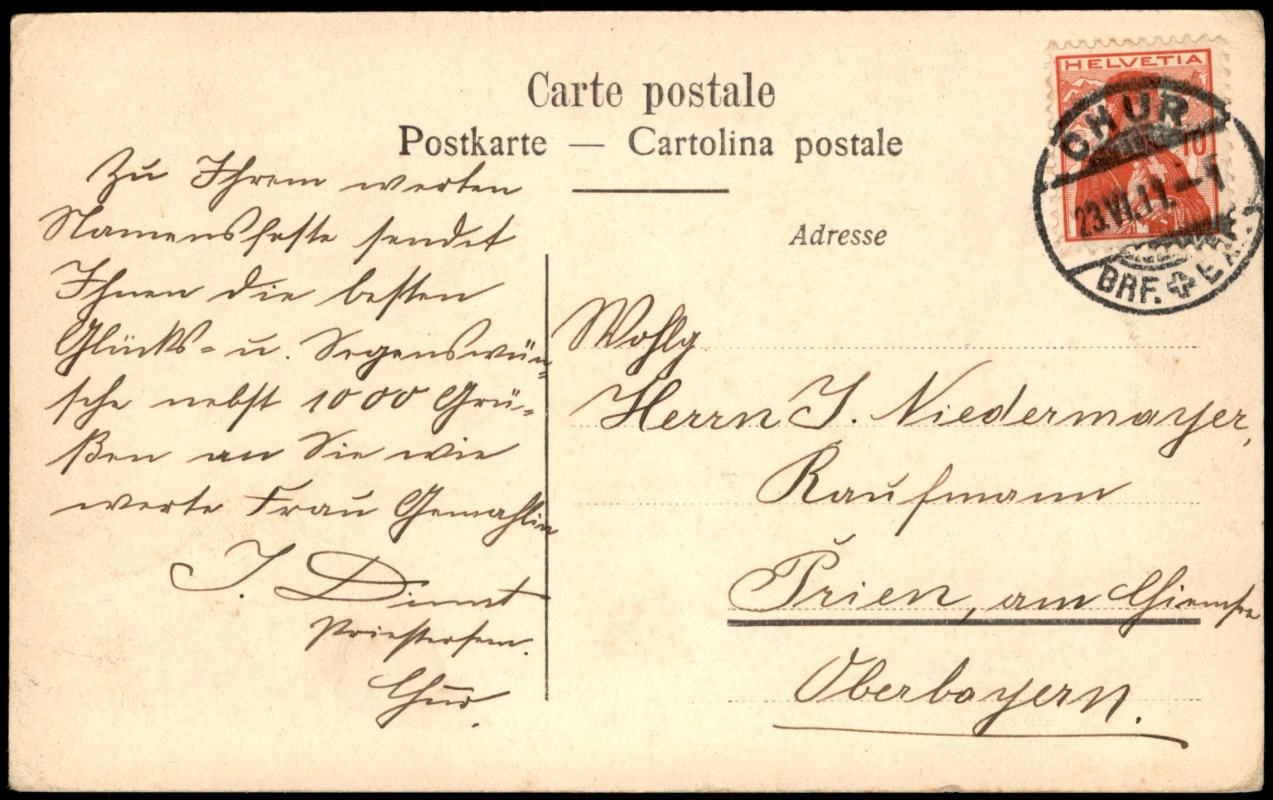 Carte postale
Postkarte — Cartolina postale
Adresse
HELVETIA
10
CHUR
23.VI.11.-1
BRF. EXP.
Zu Ihrem werten
Namensfeste sendet
Ihnen die besten
Glücks- u. Segenswün-
sche nebst 1000 Grü-
ßen an Sie wie
werte Frau Gemahlin
J.
Priestersem.
Chur.
Wohlg
Herrn J. Niedermayer,
Kaufmann
Prien, am Chiemsee
Oberbayern.